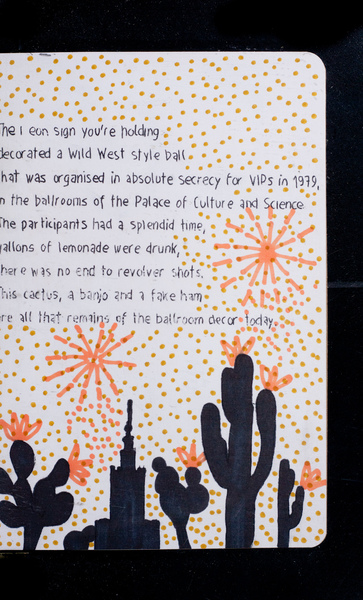 The neon sign you're holding
decorated a Wild West style ball
that was organised in absolute secrecy for VIPs in 1979,
in the ballrooms of the Palace of Culture and Science.
The participants had a splendid time,
gallons of lemonade were drunk,
there was no end to revolver shots.
This cactus, a banjo and a fake ham
are all that remains of the ballroom decor today.